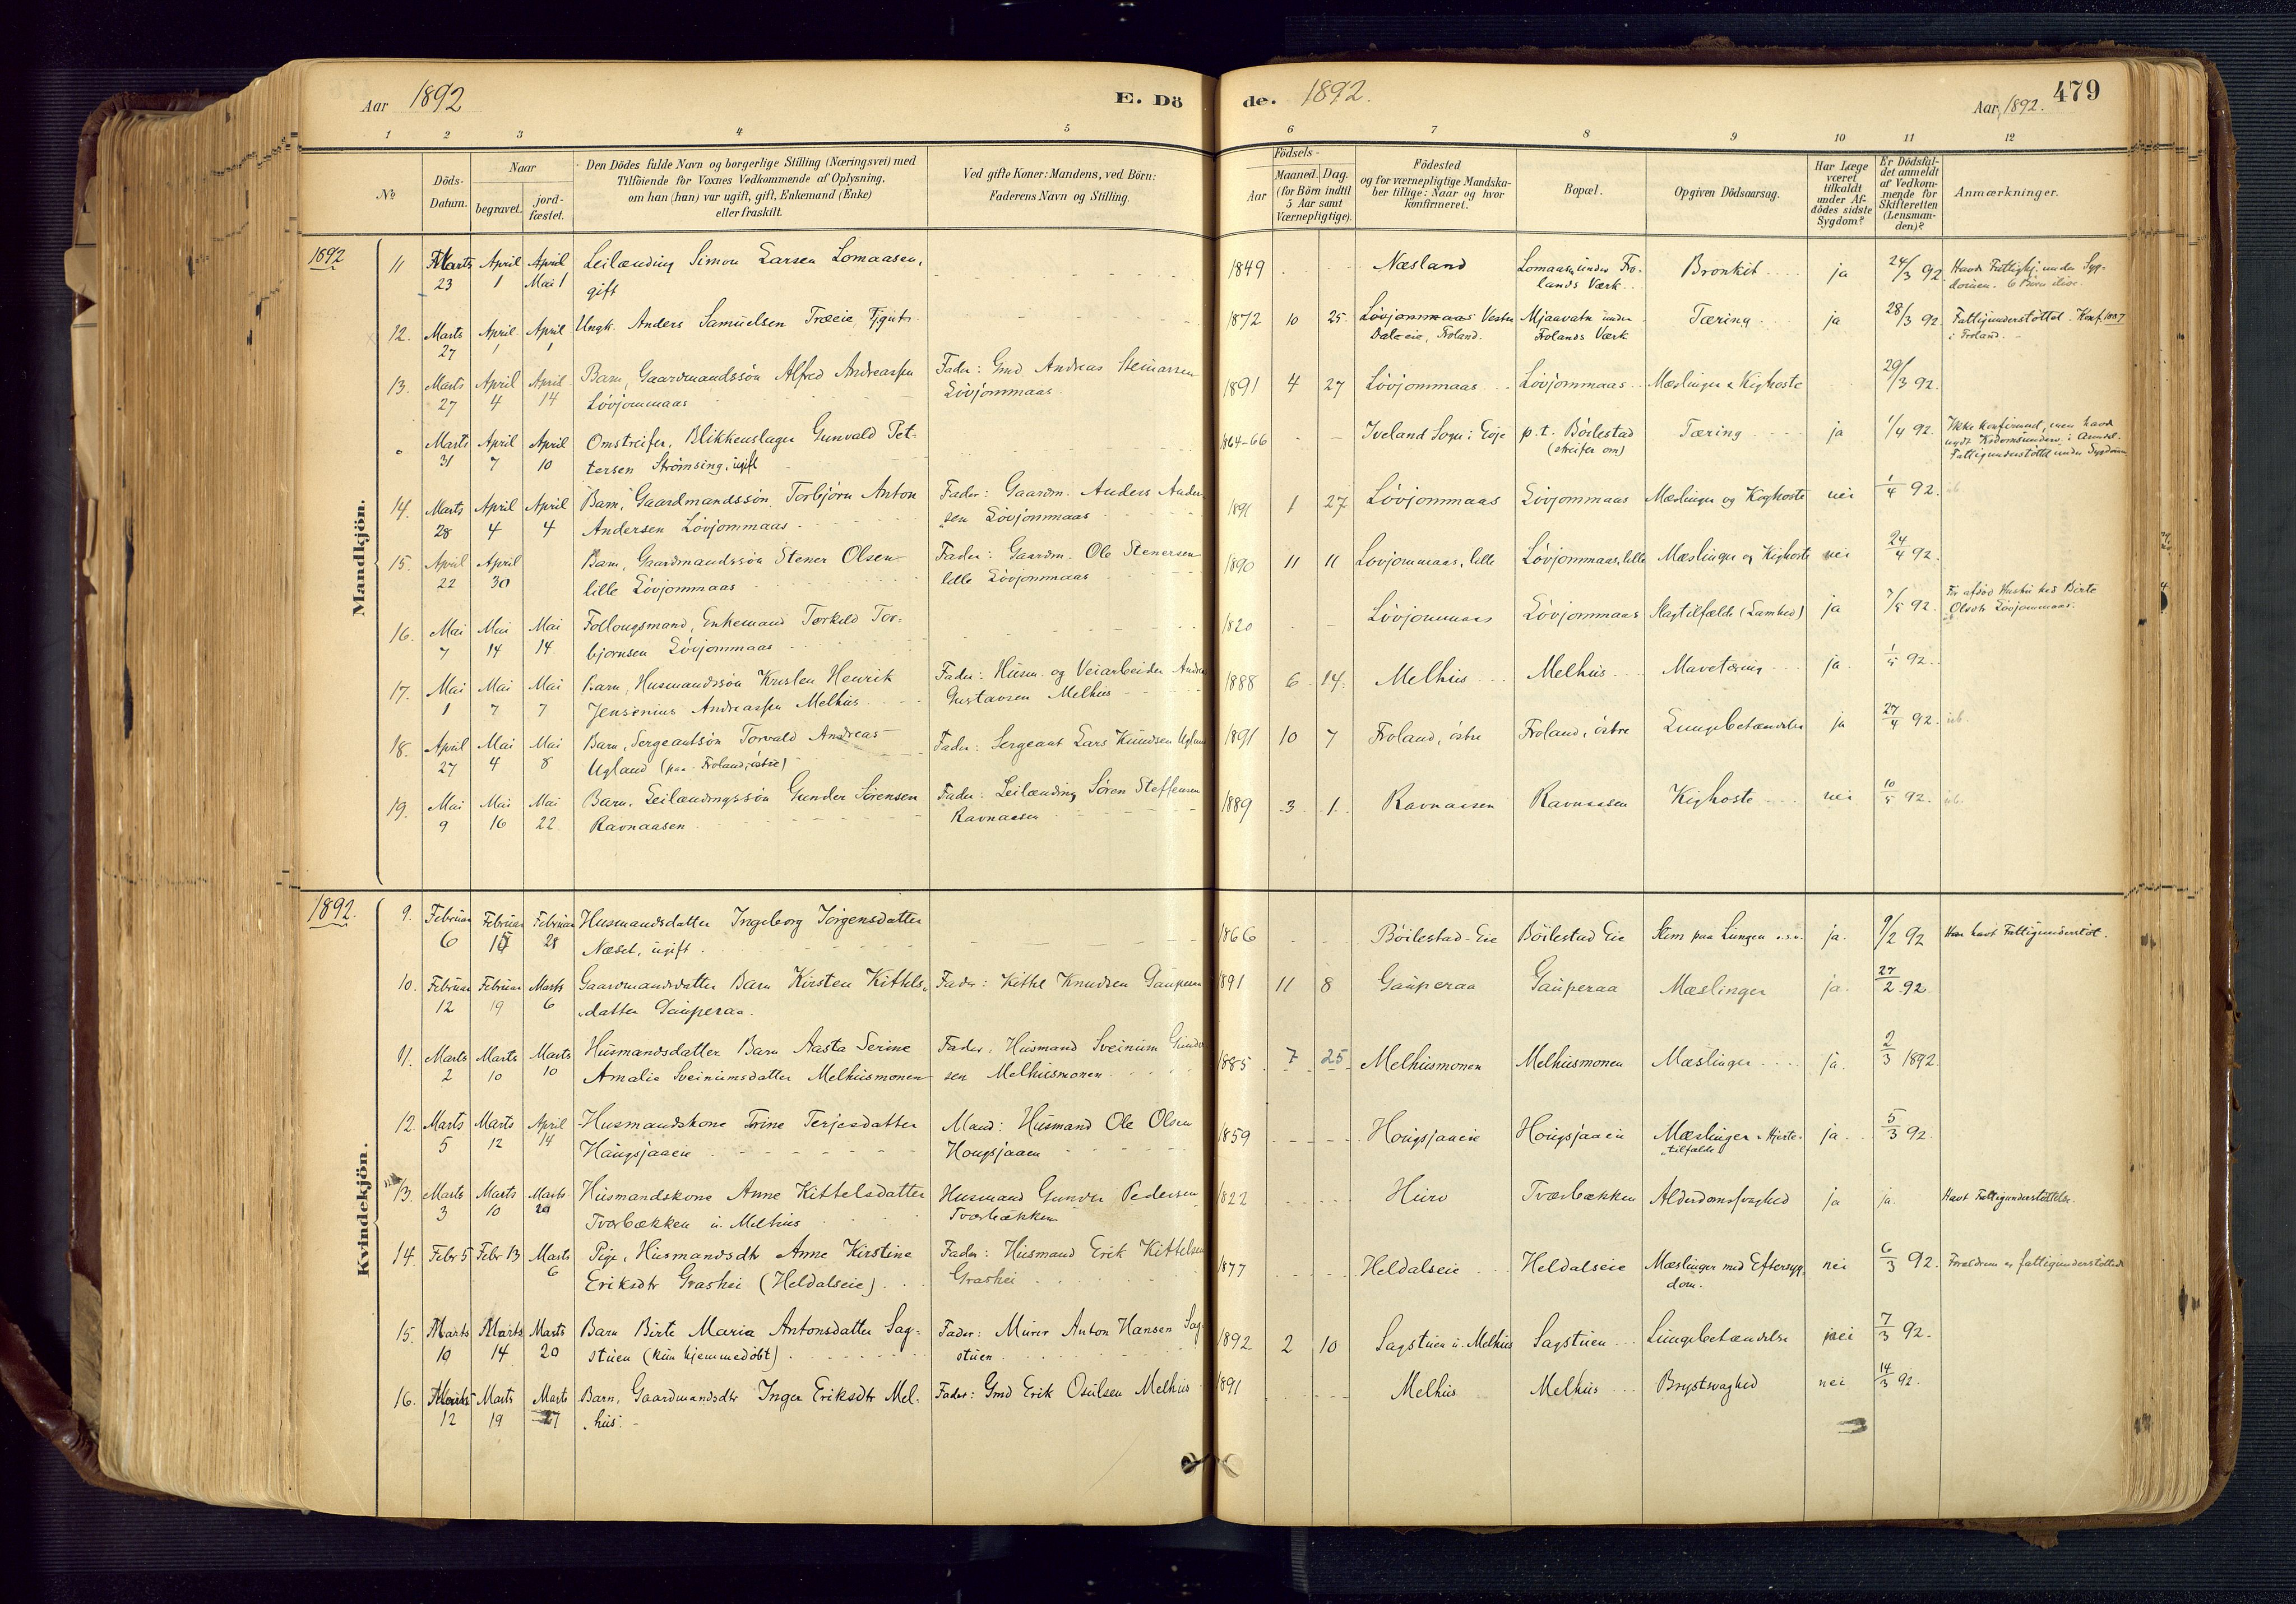 Aar 1892
E. Dö
de. 1892.
Aar 1892. 479
1 2 3 4 5 6 7 8 9 10 11 12
№
Döds-
Datum.
Naar
begravet.
jord-
fæstet.
Den Dödes fulde Navn og borgerlige Stilling (Næringsvei) med
Tilföiende for Voxnes Vedkommende af Oplysning,
om han (hun) var ugift, gift, Enkemand (Enke)
eller fraskilt.
Ved gifte Koner: Mandens, ved Börn:
Faderens Navn og Stilling.
Födsels-
Aar
Maaned. Dag.
(for Börn indtil
5 Aar samt
Værnepligtige).
Födested
og for værnepligtige Mandska-
ber tillige: Naar og hvor
konfirmeret.
Bopæl.
Opgiven Dödsaarsag.
Har Læge
været
tilkaldt
under Af-
dödes sidste
Sygdom?
Er Dödsfal-
det anmeldt
af Vedkom-
mende for
Skifteretten
(Lensman-
den)?
Anmærkninger.
Mandkjön.
1892
11 Marts April April Leilænding Simon Larsen Lomaasen, 1849 Næsland Lomaasen under Fro- Bronkit ja 24/3 92.
23 1 Mai 1 gift lands Værk
6 Børn ilive.
12. Marts April April Ungk. Anders Samuelsen Træeie, 1872 10 25. Løvjommaas Vestre Mjaavatn under Tæring ja 28/3 92. Fattigunderstöttet. Konf. 1887
27 1 1 Daleeie, Froland. Frolands Værk i Froland.
13. Marts April April Barn, Gaardmandssön Alfred Andreassen Fader: Gmd Andreas Steinarsen 1891 4 27 Lövjommaas Lövjommaas Mæslinger & Kighoste 29/3 92.
27 4 14 Lövjommaas Lövjommaas
Marts April April Omstreifer, Blikkenslager Gunvald Pet- 1864-66 Iveland Sogn i Eoje p.t. Böilestad Tæring ja 1/4 92. Ikke konfirmeret, men havde
31 7 10 tersen Strømsing, ugift (streifer om) nydt i Arendal.
Fattigunderstöttet under Sygdom
14. Marts April April Barn, Gaardmandssön Torbjörn Anton Fader: Gaardm. Anders Ander- 1891 1 27 Lövjommaas Lövjommaas Mæslinger og Kighoste nei 1/4 92.
28 4 4 Andersen Lövjommaas sen Lövjommaas
15. April April Barn, Gaardmandssön Stener Olsen Fader: Gaardm. Ole Stenersen 1890 11 11 Lovjommaas, lille Lövjommaas, lille Mæslinger og Kighoste nei 24/4 92.
22 30 lille Lövjommaas lille Lövjommaas
16. Mai Mai Mai Follougsmand, Enkemand Torkild Tor- 1820 Lövjommaas Lövjommaas Slagtilfælde (Lamhed) ja 7/5 92. Före afdöd Hustru hed Birte
7 14 14 bjornsen Lövjommaas Olsdtr Lövjommaas.
17. Mai Mai Mai Barn, Husmandssön Kristen Henrik Fader: Husm. og Veiarbeider Anders 1888 6 14. Melhus Melhus Mavetæring ja. 1/5 92.
1 7 7 Jensenius Andreassen Melhus Gustavsen Melhus
18. April Mai Mai Barn, Sergeantsön Torvald Andreas Fader: Sergeant Lars Knudsen Ugland 1891 10 7 Froland, östre Froland, östre Lungebetændelse ja 27/4 92.
27 4 8 Ugland (paa Froland, östre)
19. Mai Mai Mai Barn, Leilændingssön Gunder Sörensen Fader: Leilænding Sören Steffensen 1889 3 1. Ravnaasen Ravnaasen Kighoste nei 10/5 92.
9 16 22 Ravnaasen Ravnaasen
Kvindekjön.
1892.
9. Februar Februar Februar Husmandsdatter Ingeborg Jörgensdatter 1866 Böilestad-Eie Böilestad Eie Slem paa Lungen o.s.v. ja. 9/2 92 Har havt Fattigunderstöt.
6 15 28 Næset, ugift.
10. Februar Februar Marts Gaardmandsdatter Barn Kirsten Kittels- Fader: Kittel Knudsen Gauperaa 1891 11 8 Gauperaa Gauperaa Mæslinger ja. 27/2 92
12 19 6 datter Gauperaa.
11. Marts Marts Marts Husmandsdatter Barn Aasta Serine Fader: Husmand Sveinum Gunder- 1885 7 25 Melhusmonen Melhusmonen Mæslinger ja. 2/3 1892.
2 10 10 Amalie Sveinumsdatter Melhusmonen sen Melhusmonen
12. Marts Marts April Husmandskone Trine Terjesdatter Mand: Husmand Ole Olsen 1859 Hougsjaaeie Hougsjaaeie Mæslinger & Hjerte- ja 5/3 92.
5 12 14 Haugsjaaeie Hougsjaaen tilfælde
13. Marts Marts Marts Husmandskone Anne Kittelsdatter Husmand Gunder Pedersen 1822 Huro Tværbækken Alderdomssvaghed ja ja. Havt Fattigunderstöttelse.
3 10 20 Tværbækken u. Melhus Tværbækken
14. Febr 5 Febr 13 Marts Pige, Husmandsdtr Anne Kirstine Fader: Husmand Erik Kittelsen 1877 Heldalseie Heldalseie Mæslinger med Eftersyg- nei 6/3 92. Forældrene er fattigunderstöttede
6 Eriksdtr Grashei (Heldalseie) Grashei dom.
15. Marts Marts Marts Barn Birte Maria Antonsdatter Sag- Fader: Murer Anton Hansen Sag- 1892 2 10 Sagstuen u. Melhus Sagstuen Lungebetændelse nei 7/3 92.
10 14 20 stuen (kun hjemmedöbt) stuen
16. Marts Marts Marts Barn, Gaardmandsdtr Inger Eriksdtr Mel- Fader: Gmd Erik Osulsen Melhus 1891 Melhus Melhus Brystsvaghed nei 14/3 92.
12 19 27 hus.